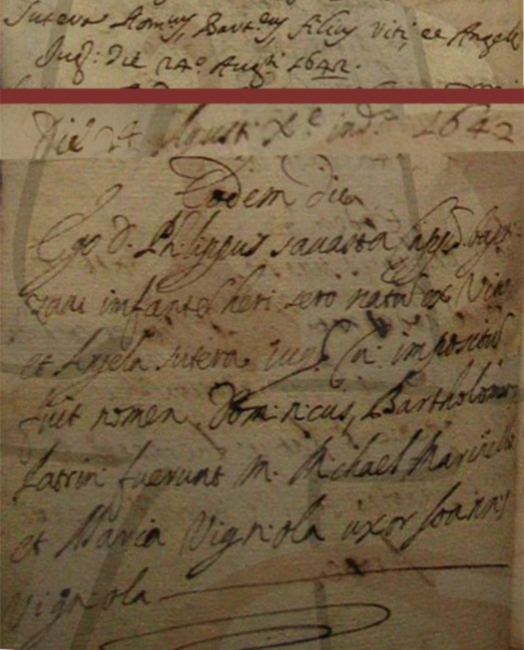 Sutera Domcus, Barteus filius Viti, et Angele
Jug: die 24º Augti 1642.
Die 24 Agusti Xe indis 1642
Eodem die
Ego D. Philippus savasta Capps bapti-
zavi infante heri sero natu ex Vito
et Angela sutera iug: Cui impositus
fuit nomen Dominicus, Bartholomeus
Patrini fuerunt M. Michael Marinello
et Maria Vignola uxor Joannis
Vignola